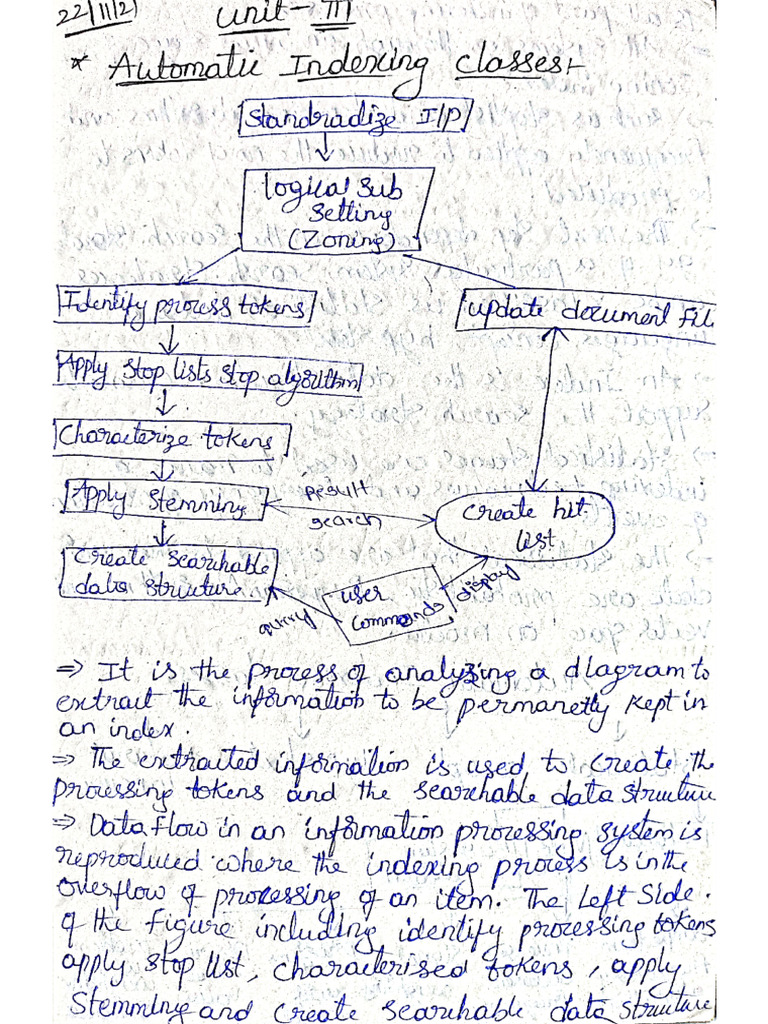 22/11/21
Unit-III
* Automatic Indexing Classes:-
Standradize I/P
logical sub
setting
(Zoning)
Identify process tokens
update document fil
Apply stop lists stop algorithm
Characterize tokens
Apply stemming
result
search
create hit
list
create searchable
data structure
user
commands
query
display
⇒ It is the process of analyzing a diagram to
extract the information to be permanetly kept in
an index.
⇒ The extraited information is used to create the
processing tokens and the searchable data structure
⇒ Data flow in an information processing system is
reproduced where the indexing process is in the
overflow of processing of an item. The left side.
of the figure including identify processing tokens
apply stop list, characterised tokens, apply
stemming and create searchable data structure